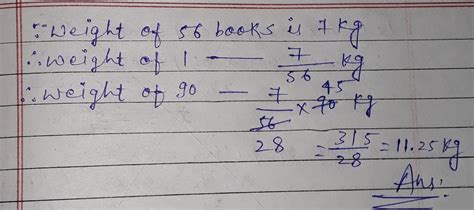 ∵ weight of 56 books is 7 kg
∴ weight of 1 — 7/56 kg
∴ weight of 90 — 7/56 × 90 kg
45
28
= 315/28 = 11.25 kg
Ans.